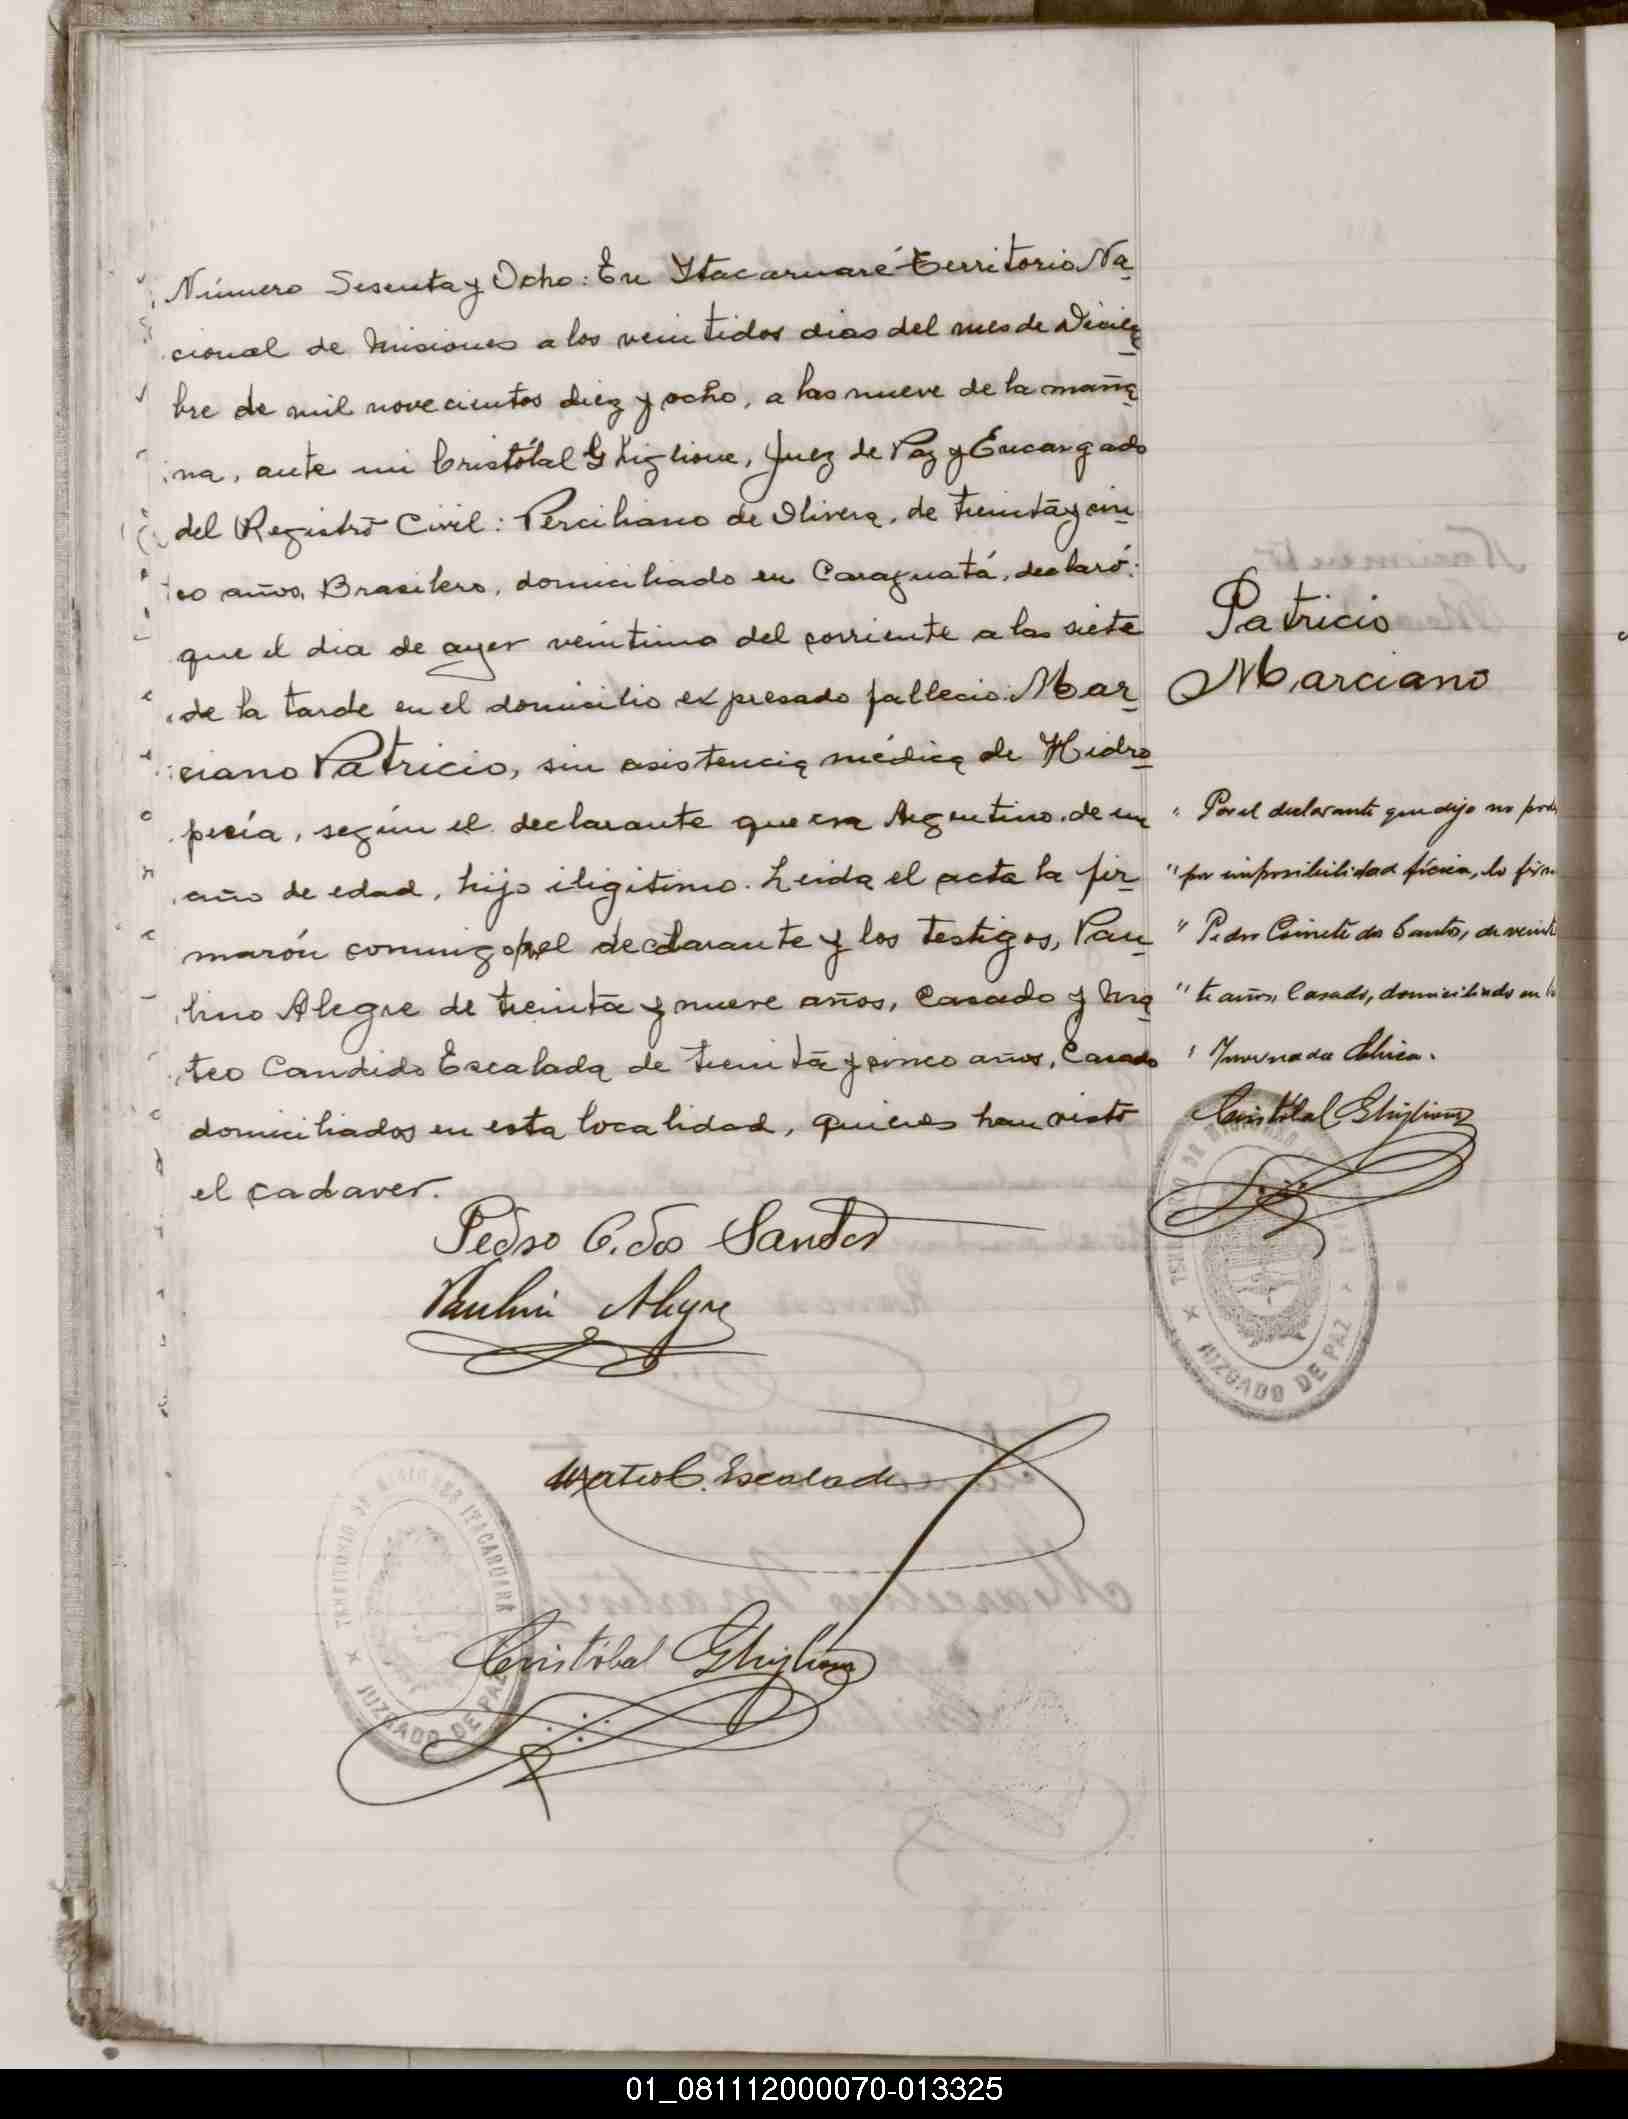 Número Sesenta y Ocho: En Ytacaruaré Territorio Na
cional de Misiones a los veintidos dias del mes de Diciem
bre de mil novecientos diez y ocho, a las nueve de la maña
na, ante mi Cristóbal Ghiglione, Juez de Paz y Encargado
del Registro Civil: Perciliano de Olivera, de treinta y cin
co años, Brasilero, domiciliado en Caraguatá, declaró:
que el dia de ayer veintiuno del corriente a las siete
de la tarde en el domicilio expresado fallecio: Mar
ciano Patricio, sin asistencia médica de Hidro
pecía, según el declarante que era Argentino, de un
año de edad, hijo iligitimo. Leida el acta la fir
marón conmigo por el declarante y los testigos, Pau
lino Alegre de treinta y nueve años, Casado y Ma
teo Candido Escalada de treinta y cinco años, Casado
domiciliados en esta localidad, quienes han visto
el cadaver.
Patricio
Marciano
" Por el declarante que dijo no pod
" por imposibilidad fícica, lo firm
" Pedro dos Santos, de veinti
" te años, Casado, domiciliado en
" Invernada Chica.
Cristóbal Ghiglione
TERRITORIO DE MISIONES
JUZGADO DE PAZ
Pedro C. dos Santos
Paulino Alegre
Mateo C. Escalada
Cristóbal Ghiglione
TERRITORIO DE MISIONES ITACARUARE
JUZGADO DE PAZ
01_081112000070-013325